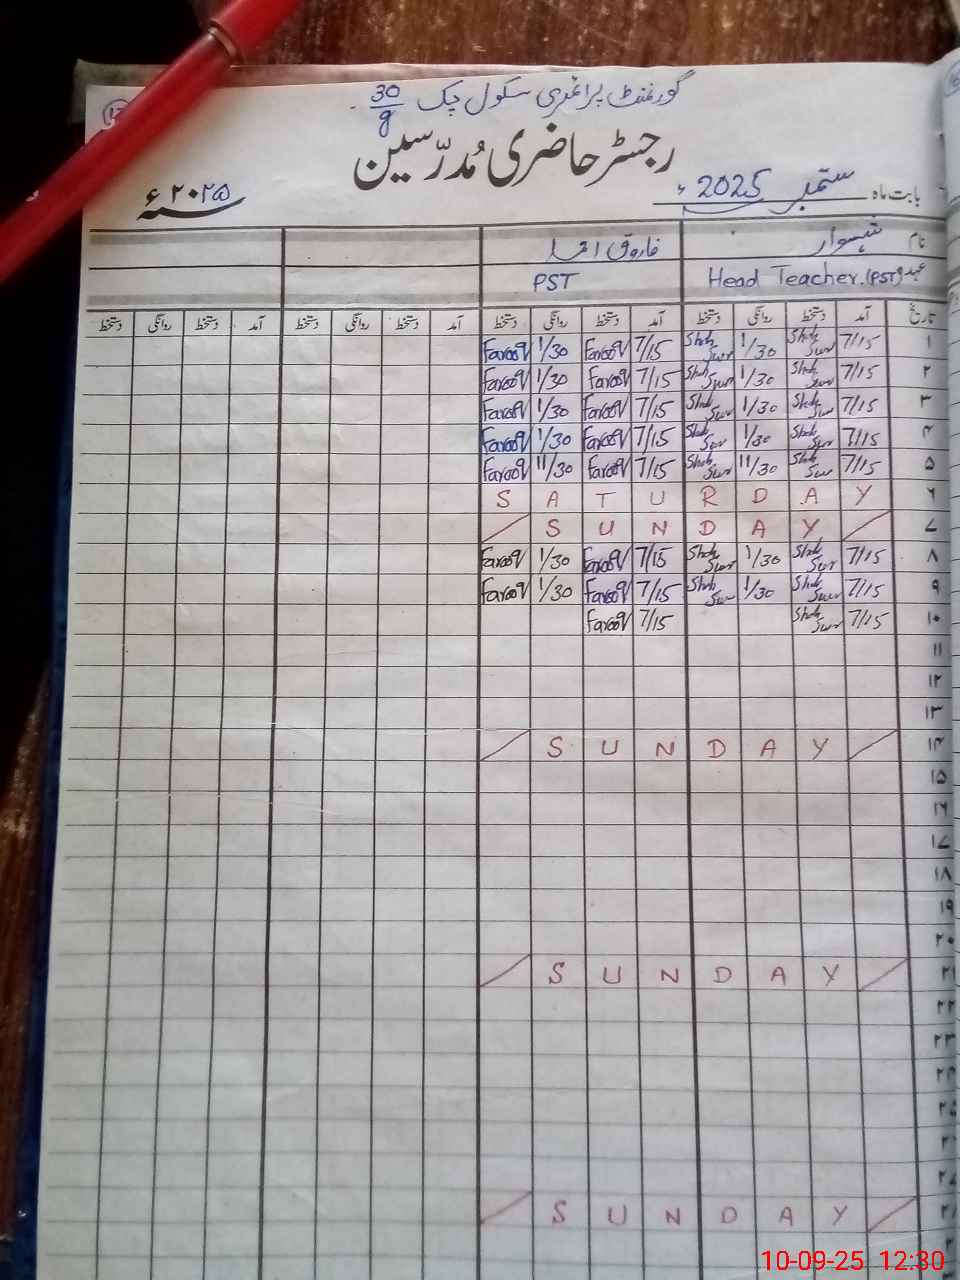 گورنمنٹ پرائمری سکول چک 30/g
رجسٹر حاضری مُدرّسین
بابت ماہ ستمبر 2025ء سنہ ۲۰۲۵ء
نام شہسوار فاروق احمد
عہدہ Head Teacher.(PST) PST
تاریخ آمد دستخط روانگی دستخط آمد دستخط روانگی دستخط آمد دستخط روانگی دستخط آمد دستخط روانگی دستخط
۱ 7/15 Shah Swr 1/30 Shah Swr 7/15 Farooq 1/30 Farooq
۲ 7/15 Shah Swr 1/30 Shah Swr 7/15 Farooq 1/30 Farooq
۳ 7/15 Shah Swr 1/30 Shah Swr 7/15 Farooq 1/30 Farooq
۴ 7/15 Shah Swr 1/30 Shah Swr 7/15 Farooq 1/30 Farooq
۵ 7/15 Shah Swr 11/30 Shah Swr 7/15 Farooq 11/30 Farooq
۶ SATURDAY
۷ SUNDAY
۸ 7/15 Shah Swr 1/30 Shah Swr 7/15 Farooq 1/30 Farooq
۹ 7/15 Shah Swr 1/30 Shah Swr 7/15 Farooq 1/30 Farooq
۱۰ 7/15 Shah Swr 7/15 Farooq
۱۱
۱۲
۱۳
۱۴ SUNDAY
۱۵
۱۶
۱۷
۱۸
۱۹
۲۰
۲۱ SUNDAY
۲۲
۲۳
۲۴
۲۵
۲۶
۲۷
۲۸ SUNDAY
10-09-25 12:30